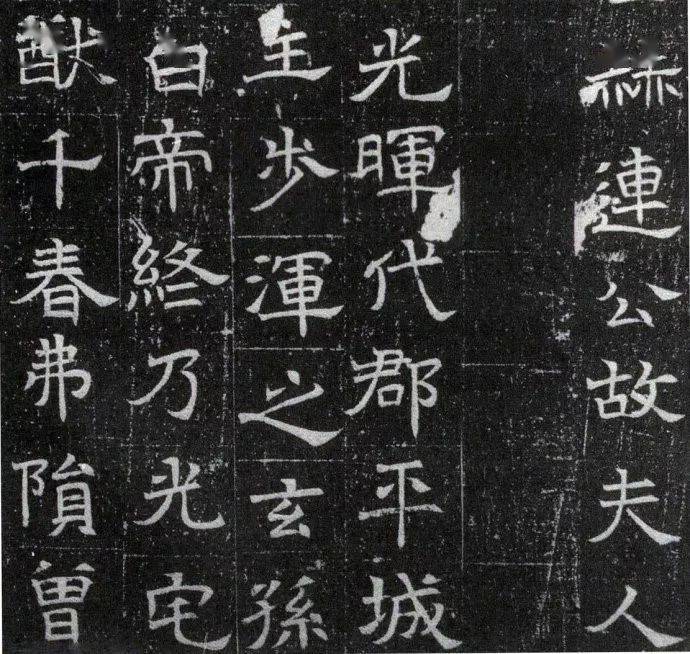 赫連公故夫人
光暉代郡平城
主步渾之玄孫
白帝終乃光宅
猷千春弗隕曽